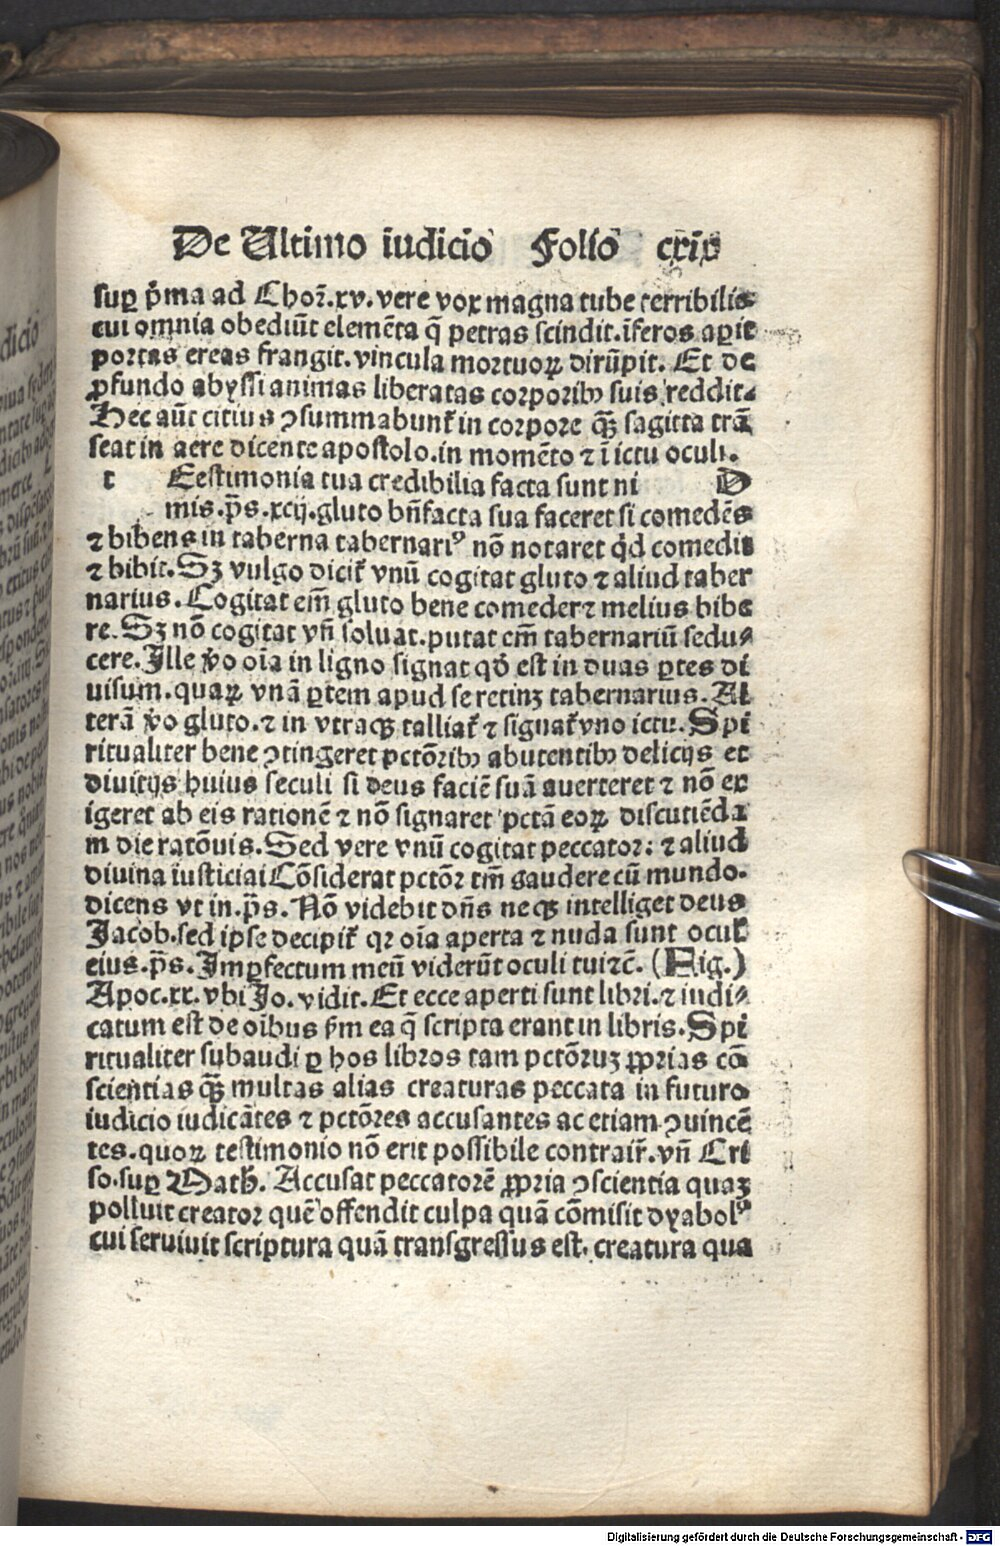 De Ultimo iudicio Folio cxix
suꝑ p̄ma ad Choꝛ̄.xv. vere vox magna tube terribilis
cui omnia obediūt elemēta q̄ petras scindit. īferos aꝑit
portas ereas frangit. vincula mortuoꝝ dirūpit. Et de
ꝓfundo abyssi animas liberatas corporibꝰ suis reddit.
Hec aūt citius ꝯsummabunt᷑ in corpore qꝫ̄ sagitta trā
seat in aere dicente apostolo. in momēto ⁊ ī ictu oculi.
t Eestimonia tua credibilia facta sunt ni D
mis. p̄s. xcij. gluto bn̄facta sua faceret si comedēs
⁊ bibens in taberna tabernariꝰ nō notaret qd̓ comedit
⁊ bibit. Sꝫ vulgo dicit᷑ vnū cogitat gluto ⁊ aliud taber
narius. Cogitat em̄ gluto bene comeder⁊ melius bibe
re. Sꝫ nō cogitat vn̄ soluat. putat em̄ tabernariū sedu⸗
cere. Ille v̓o oīa in ligno signat qd̓ est in duas ꝑtes di
uisum. quaꝝ vnā ꝑtem apud se retinꝫ tabernarius. Al
terā v̓o gluto. ⁊ in vtraqꝫ talliat᷑ ⁊ signat᷑ vno ictu. Spi
ritualiter bene ꝯtingeret pctōribꝰ abutentibꝰ delicijs et
diuitijs huius seculi si deus faciē suā auerteret ⁊ nō ex
igeret ab eis rationē ⁊ nō signaret pctā eoꝝ discutiēda
in die ratōnis. Sed vere vnū cogitat peccator: ⁊ aliud
diuina iusticiai Cōsiderat pctōꝛ tm̄ gaudere cū mundo.
dicens vt in. p̄s. Nō videbit dn̄s neqꝫ intelliget deus
Jacob. sed ipse decipit᷑ qꝛ oīa aperta ⁊ nuda sunt ocul᷑
eius. p̄s. Imꝑfectum meū viderūt oculi tui ⁊c̄. (Fig.)
Apoc. xx. vbi Jo. vidit. Et ecce aperti sunt libri. ⁊ iudi⸗
catum est de oībus ẜm ea q̄ scripta erant in libris. Spi
ritualiter subaudi ꝑ hos libros tam pctōruꝫ ꝓprias cō
scientias qꝫ̄ multas alias creaturas peccata in futuro
iudicio iudicātes ⁊ pctōres accusantes ac etiam ꝯuincē
tes. quoꝝ testimonio nō erit possibile contrair̄. vn̄ Cri
so. suꝑ Math. Accusat peccatorē ꝓpria ꝯscientia quaꝫ
polluit creator quē offendit culpa quā cōmisit dyabolꝰ
cui seruiuit scriptura quā transgressus est. creatura qua
Digitalisierung gefördert durch die Deutsche Forschungsgemeinschaft - DFG